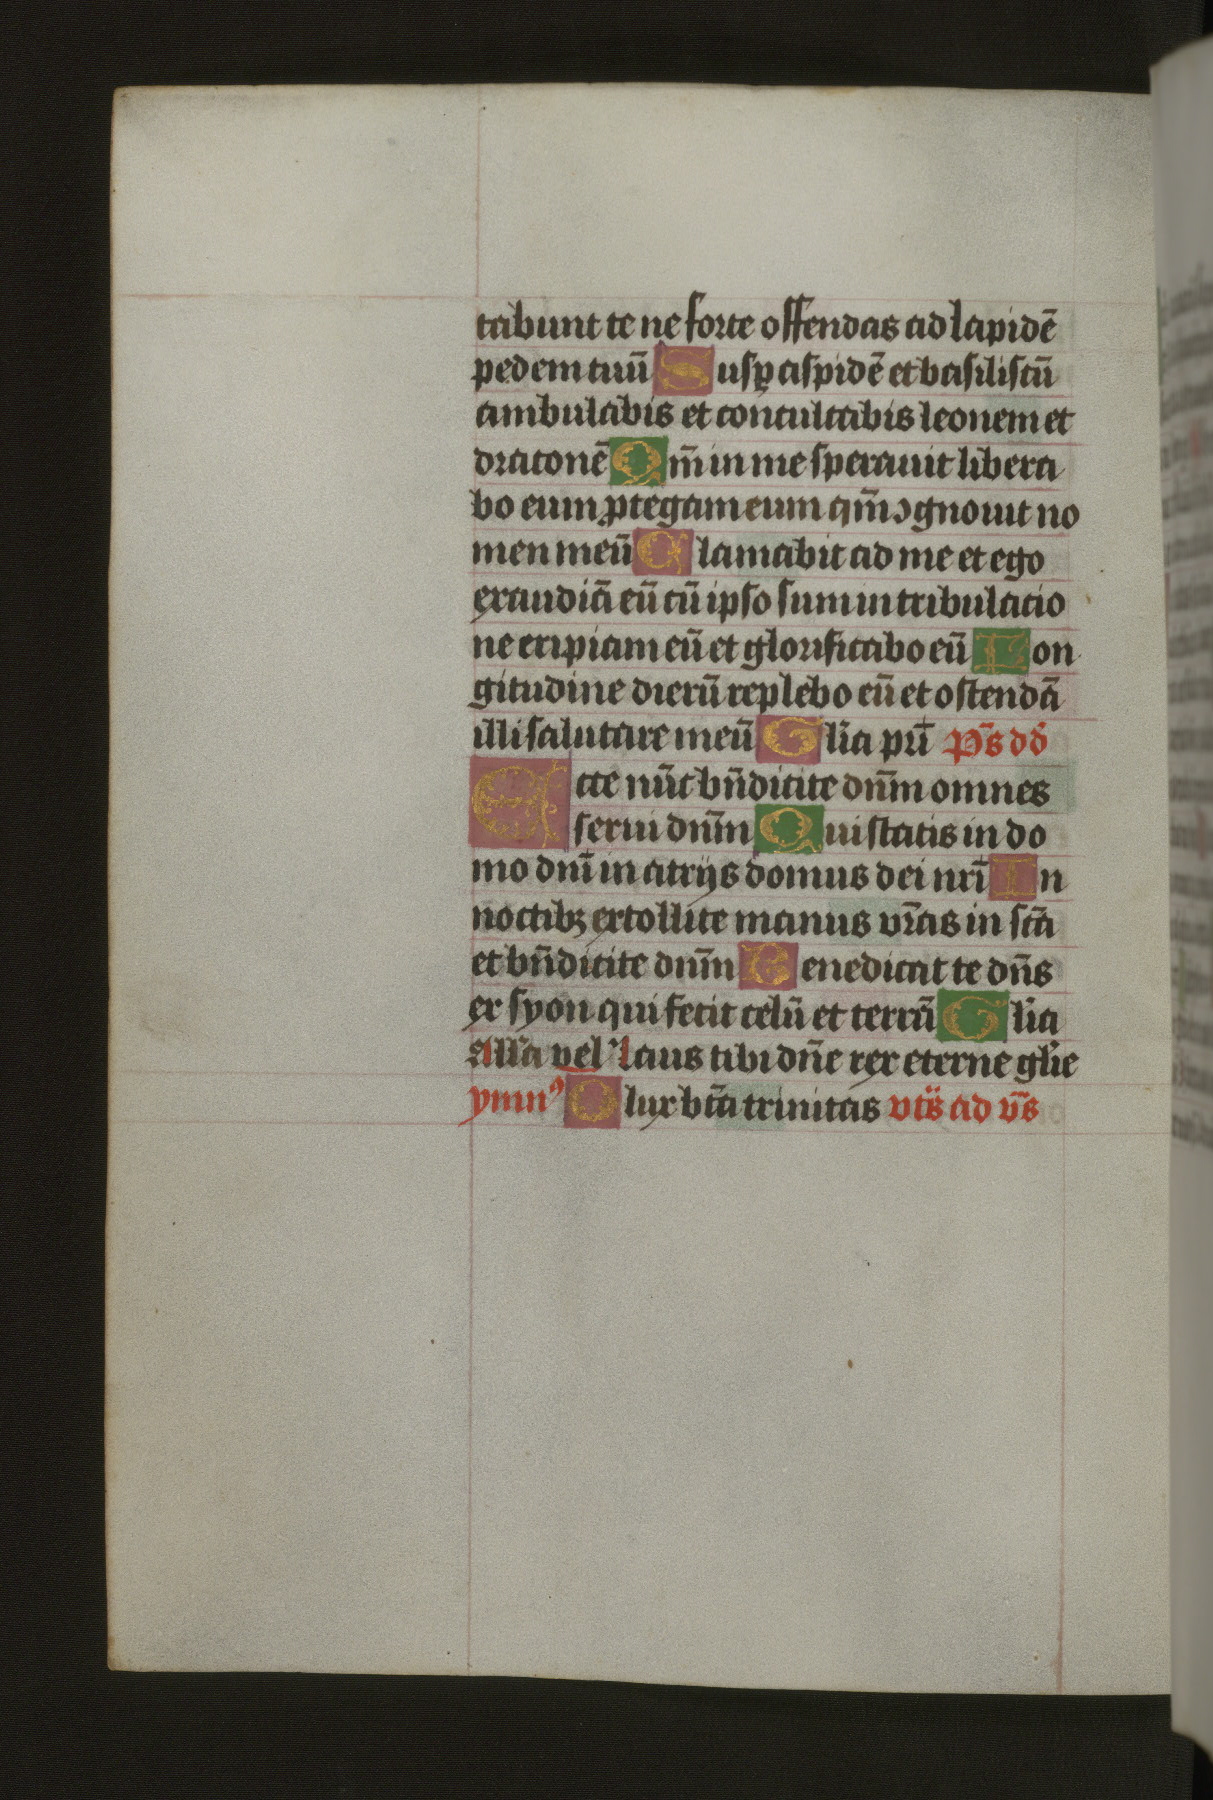 tabunt te ne forte offendas ad lapidē
pedem tuū Suꝑ aspidē et basiliscū
ambulabis et conculcabis leonem et
draconē Qm̄ in me sperauit libera
bo eum ꝓtegam eum qm̄ ꝯgnouit no
men meū Clamabit ad me et ego
exaudiā eū cū ipso sum in tribulatio
ne eripiam eū et glorificabo eū Lon
gitudine dierū replebo eū et ostendā
illi salutare meū Gl̄ia pr̄i p̄s dd̄
Ecce nūc bn̄dicite dn̄m omnes
serui dn̄m Qui statis in do
mo dn̄i in atrijs domus dei nr̄i In
noctibꝫ extollite manus vr̄as in sc̄ā
et bn̄dicite dn̄m Benedicat te dn̄s
ex syon qui fecit celū et terrā Gl̄ia
All̄a vel laus tibi dn̄e rex eterne gl̄ie
ymnꝰ O lux bt̄a trinitas vts̄ ad v̄s